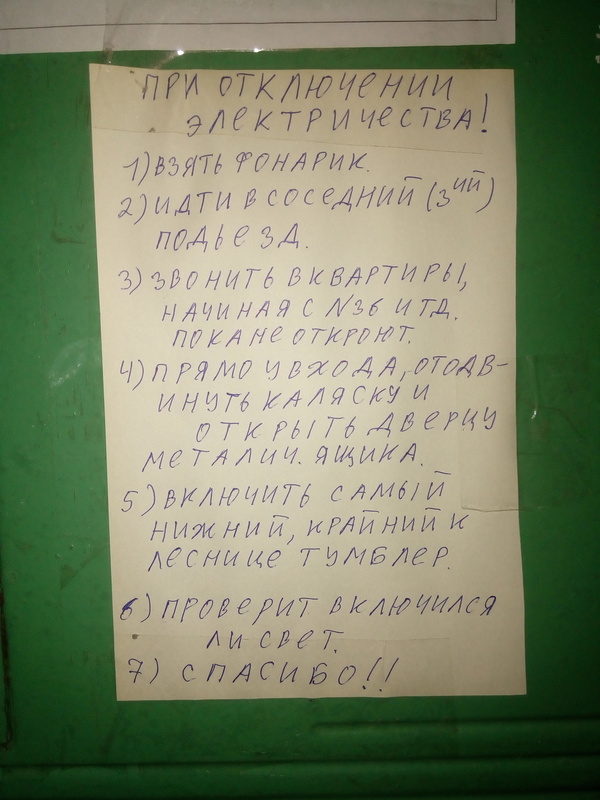 ПРИ ОТКЛЮЧЕНИИ
ЭЛЕКТРИЧЕСТВА!
1) ВЗЯТЬ ФОНАРИК.
2) ИДТИ В СОСЕДНИЙ (3ИЙ)
ПОДЬЕЗД.
3) ЗВОНИТЬ В КВАРТИРЫ,
НАЧИНАЯ С №36 И ТД.
ПОКА НЕ ОТКРОЮТ.
4) ПРЯМО У ВХОДА, ОТОДВ-
ИНУТЬ КАЛЯСКУ И
ОТКРЫТЬ ДВЕРЦУ
МЕТАЛИЧ. ЯЩИКА.
5) ВКЛЮЧИТЬ САМЫЙ
НИЖНИЙ, КРАЙНИЙ К
ЛЕСНИЦЕ ТУМБЛЕР.
6) ПРОВЕРИТ ВКЛЮЧИЛСЯ
ЛИ СВЕТ.
7) СПАСИБО!!